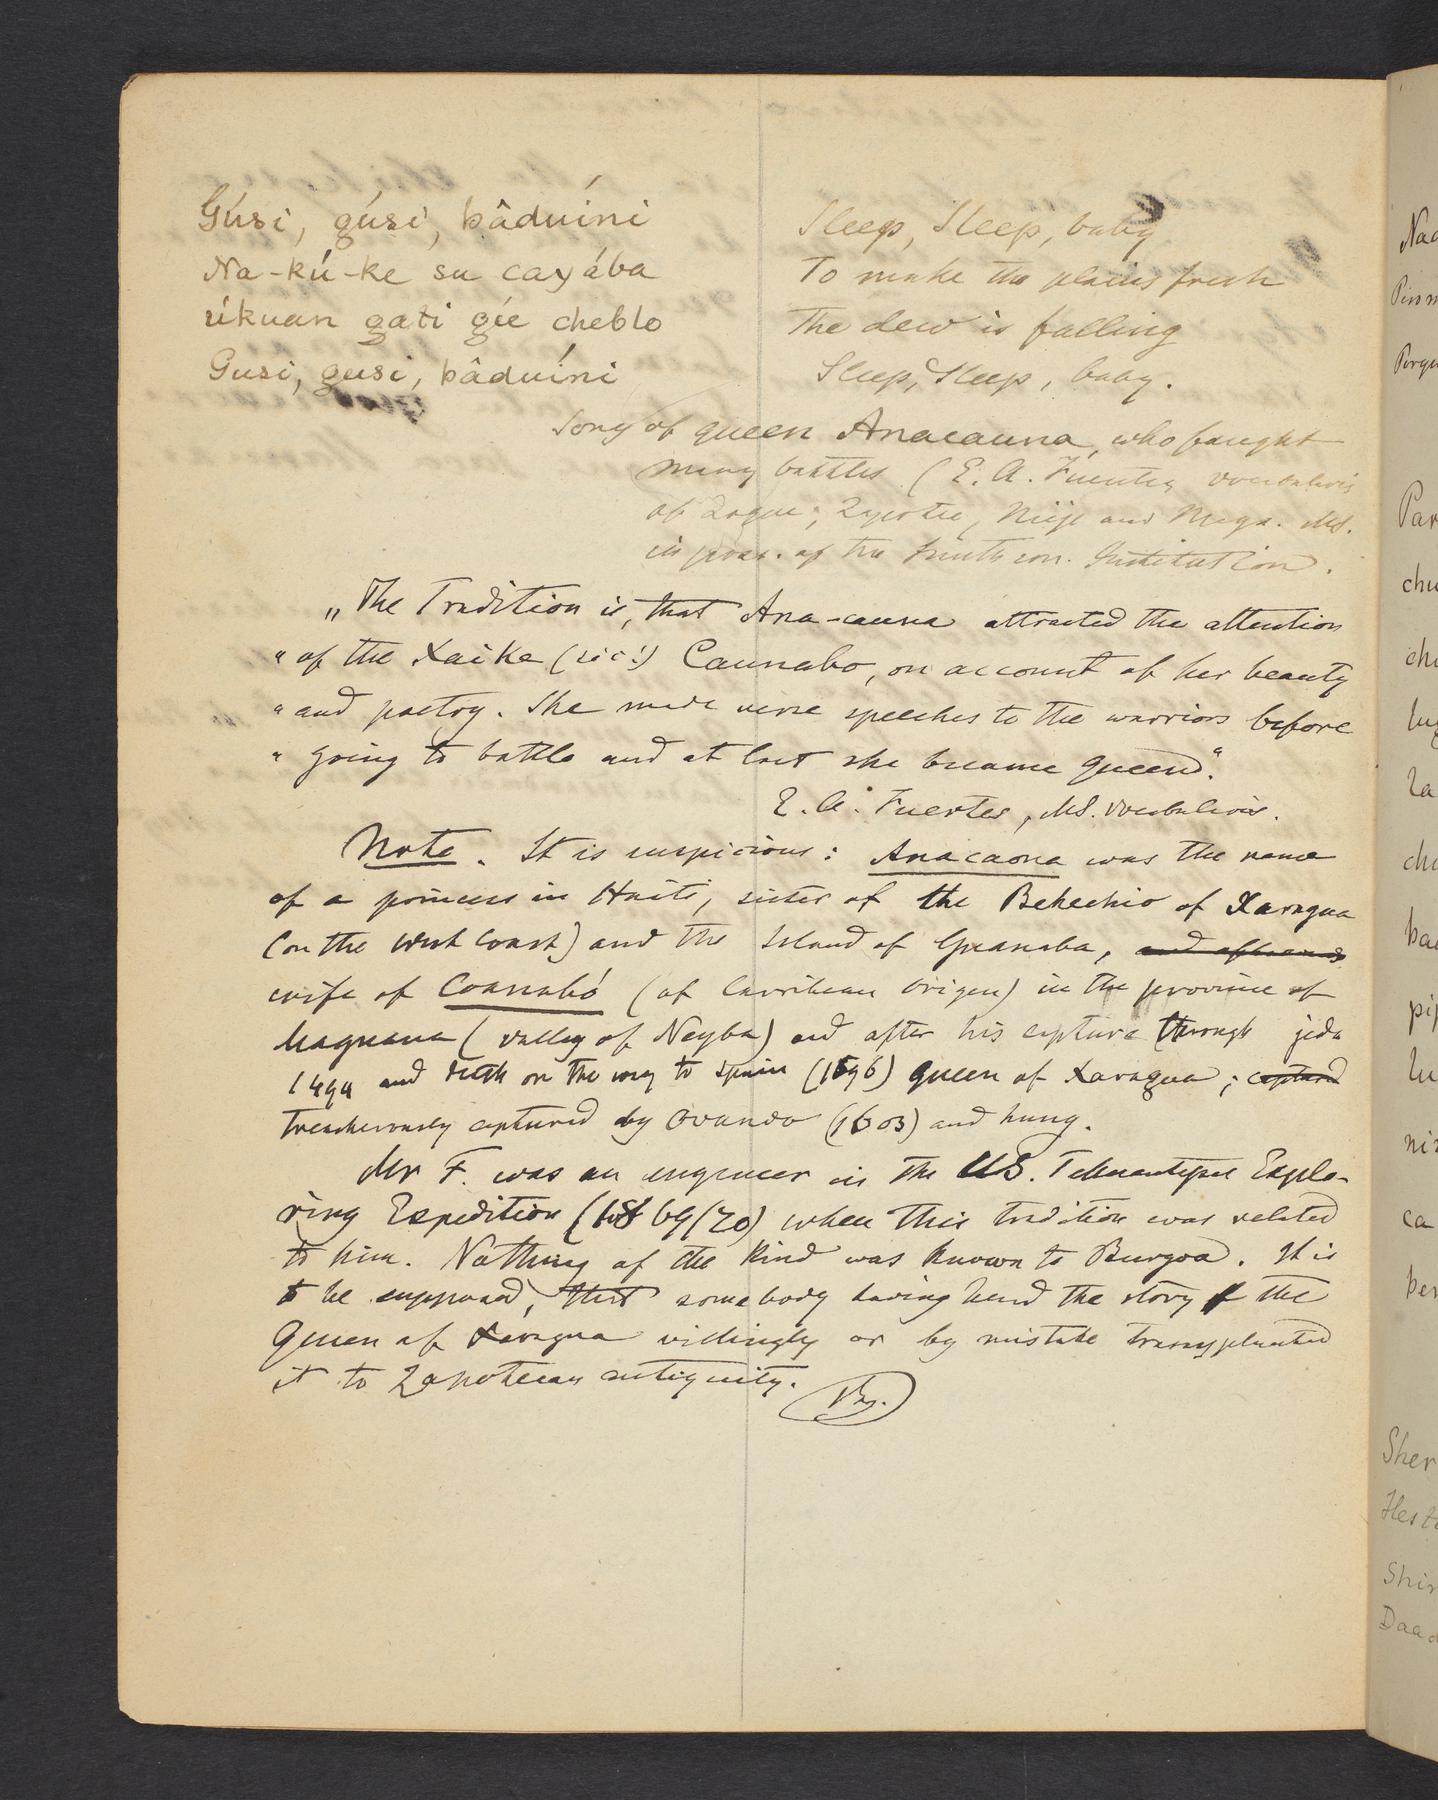 Gúsi, gúsi, bâduíni
Na-kú-ke su cayába
úkuan gati gíe cheblo
Gusi, gusi, bâduíni
Sleep, Sleep, baby
To make the plains fresh
The dew is falling
Sleep, Sleep, baby.
Song of queen Anacauna, who faught
many battles (E. A. Fuertes vocabularis
of Zoque, Zapotec, and MS.
in poss. of the Smithson. Institution.
„The Tradition is, that Ana-cauna attracted the attention
" of the Xaike (sic!) Caunabo, on account of her beauty
" and poetry. She made verse speeches to the warriors before
" going to battle and at last she became queen".
E. A. Fuertes, MS. vocabularis.
Note. It is suspicious: Anacaona was the name
of a princess in Haiti, sister of the Behechio of Xaragua
(on the West Coast) and the Island of Guanaba, and afterwards
wife of Coanabó (of Carribean Origen) in the province of
Maguana (valley of Neyba) and after his capture through
1494 and death on the way to Spain (1596) queen of Xaragua; captured
treacherously captured by Ovando (1503) and hung.
Mr F. was an engineer in the US. Tehuantepec Explo-
ring Expedition (1869/70) when this tradition was related
to him. Nothing of the kind was known to Burgoa. It is
to be supposed, that somebody having heard the story of the
Queen of Xaragua willingly or by mistake transplanted
it to Zapotecan antiquity.
Nac
Par
chu
che
lug
la
cho
bae
pij
lu
nis
ca
ber
Sher
Hest
Shir
Daad